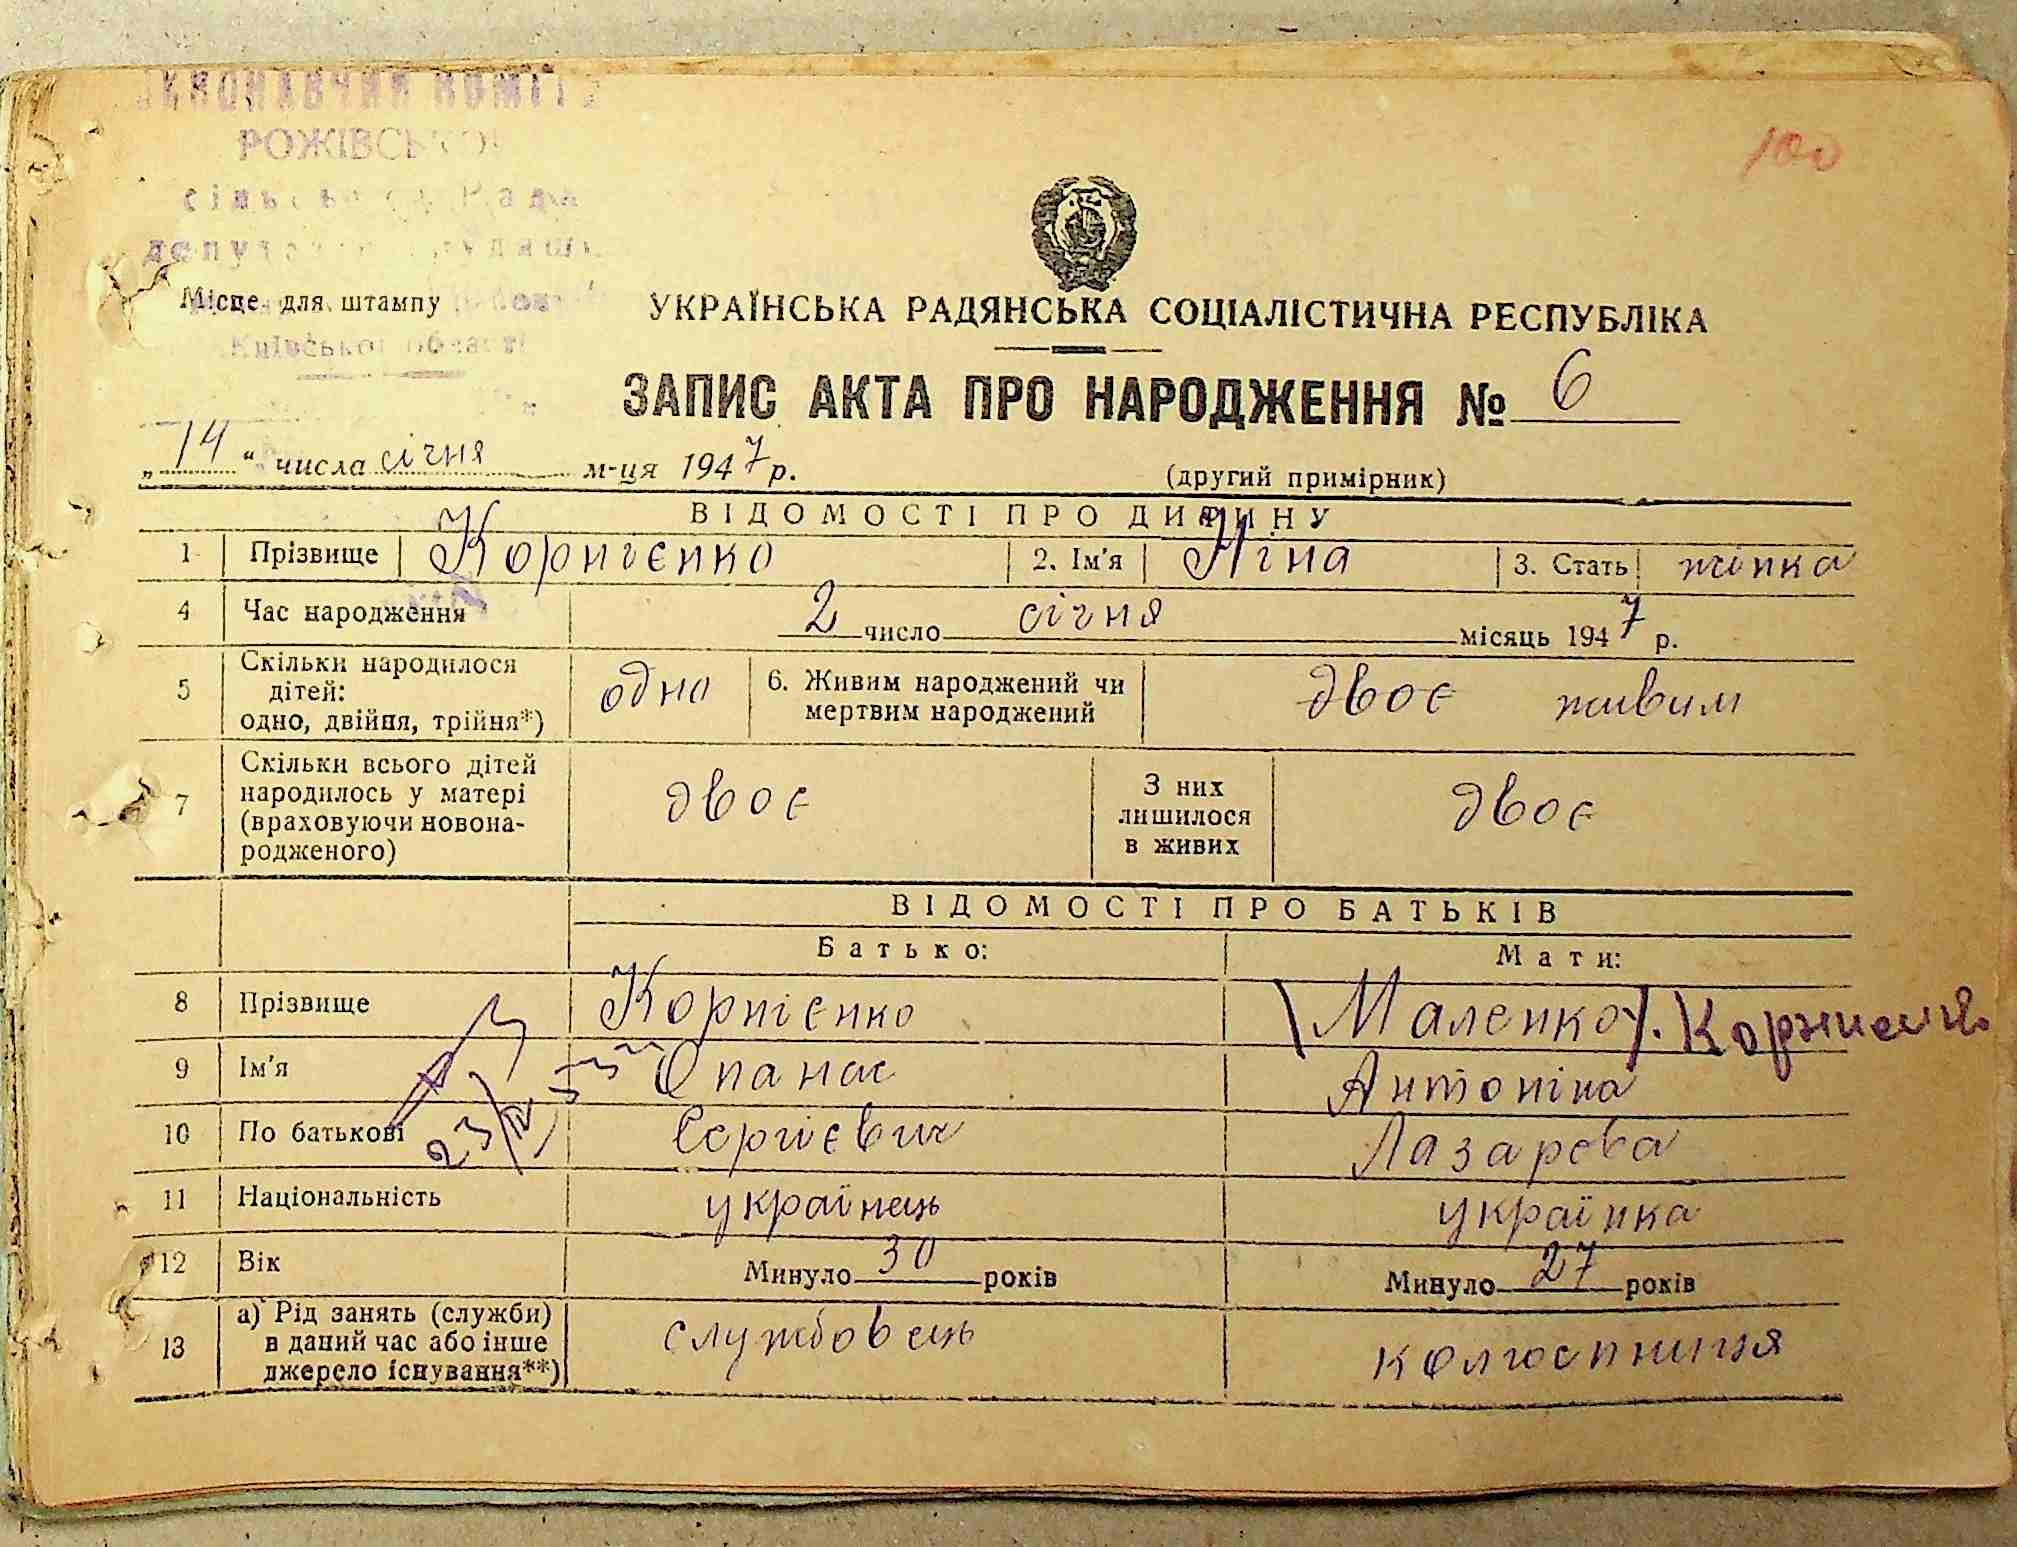 РОЖІВСЬКОЇ
100
Місце для штампу
Київської області
УКРАЇНСЬКА РАДЯНСЬКА СОЦІАЛІСТИЧНА РЕСПУБЛІКА
ЗАПИС АКТА ПРО НАРОДЖЕННЯ № 6
„14“ числа січня м-ця 1947 р.
(другий примірник)
ВІДОМОСТІ ПРО ДИТИНУ
1 Прізвище Корнієнко 2. Ім'я Ніна 3. Стать жінка
4 Час народження 2 число січня місяць 1947 р.
5 Скільки народилося дітей: одно, двійня, трійня*) одно 6. Живим народжений чи мертвим народжений двоє живим
7 Скільки всього дітей народилось у матері (враховуючи новонародженого) двоє З них лишилося в живих двоє
ВІДОМОСТІ ПРО БАТЬКІВ
Батько: Мати:
8 Прізвище Корнієнко Маленко
9 Ім'я Опанас Антоніна
10 По батькові Сергієвич Лазарева
11 Національність українець українка
12 Вік Минуло 30 років Минуло 27 років
13 а) Рід занять (служби) в даний час або інше джерело існування**) службовець колгоспниця